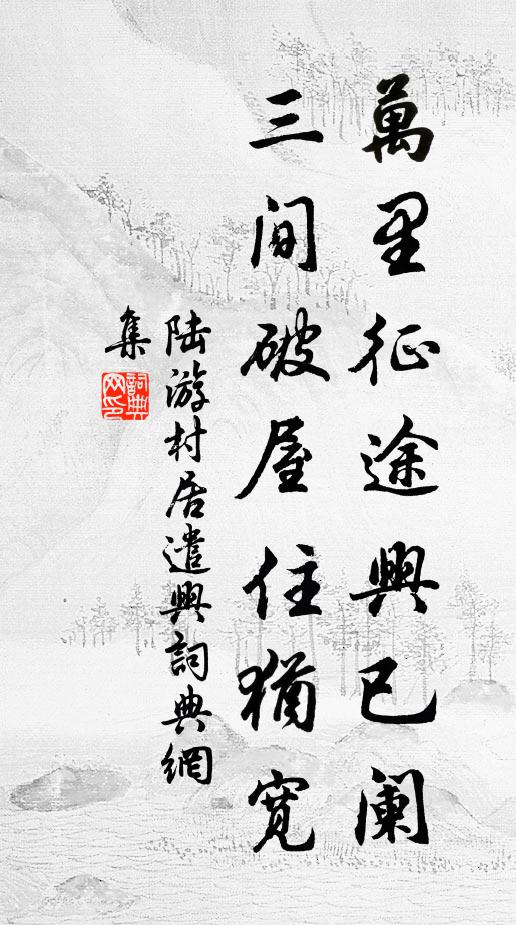 萬里征途興已阑
三间破屋住猶寬
陆游村居遣興詞典網
集
詞典
网印